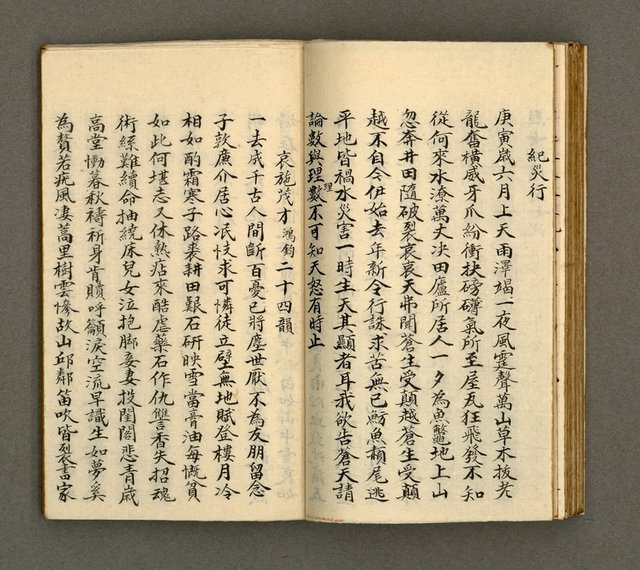 紀災行
庚寅歳六月上天雨澤竭一夜風霆聲萬山草木拔老
龍奮橫威牙爪紛衝抉磅礡氣所至屋瓦狂飛發不知
從何來水潦萬丈决田廬所居人一夕為魚鼈地上山
忽奔井田隨破裂哀哀天弗聞蒼生受顛越蒼生受顛
越不自今伊始去年新令行誅求苦無已魴魚頳尾逃
平地皆禍水災害一時生天其顯者耳我欲古蒼天請
論數與理數理不可知天怒有時止
哀施茂才鴻鈞二十四韻
一去成千古人間斷百憂已將塵世厭不為友朋留念
子敦廉介居心泯忮求可憐徒立壁無地賦登樓月冷
相如酌霜寒子路裘耕田艱石研映雪當膏油每慨貧
如此何堪志又休熱店來酷虐藥石作仇讐香失招魂
術絲難續命抽繞床兒女泣抱脚妾妻投閨閤悲青歳
高堂慟暮秋禱祈身肯贖呼籲淚空流早識生如夢奚
為贅若疣風凄蒿里樹雲慘故山邱鄰笛吹皆裂書家